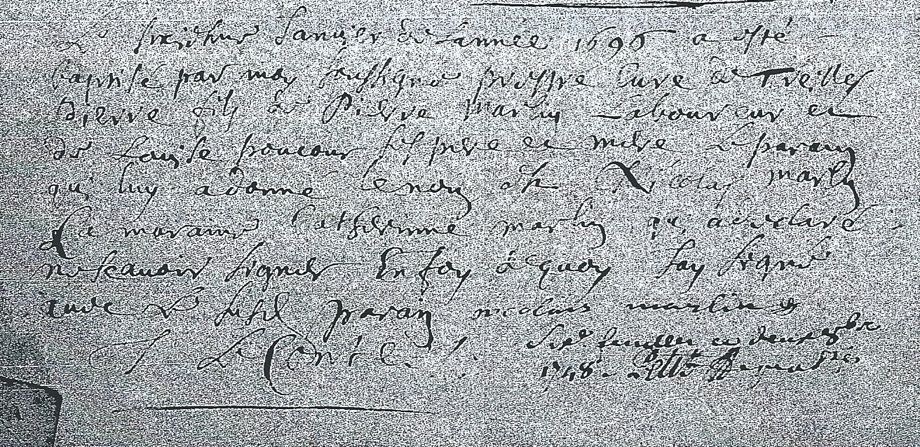 Le Janvier de Lannée 1696 a esté
baptisé par moy soussigné prestre Curé de Treilles
Pierre fils de Pierre Martin Laboureur et
de Louise ses pere et mere Le parain
qui luy a donné le nom est Nicolas Martin
La maraine Catherine martin qui a declaré
ne scauoir signer En foy de quoy Jay signé
auec Le parain nicolas martin
Le Conte
1748